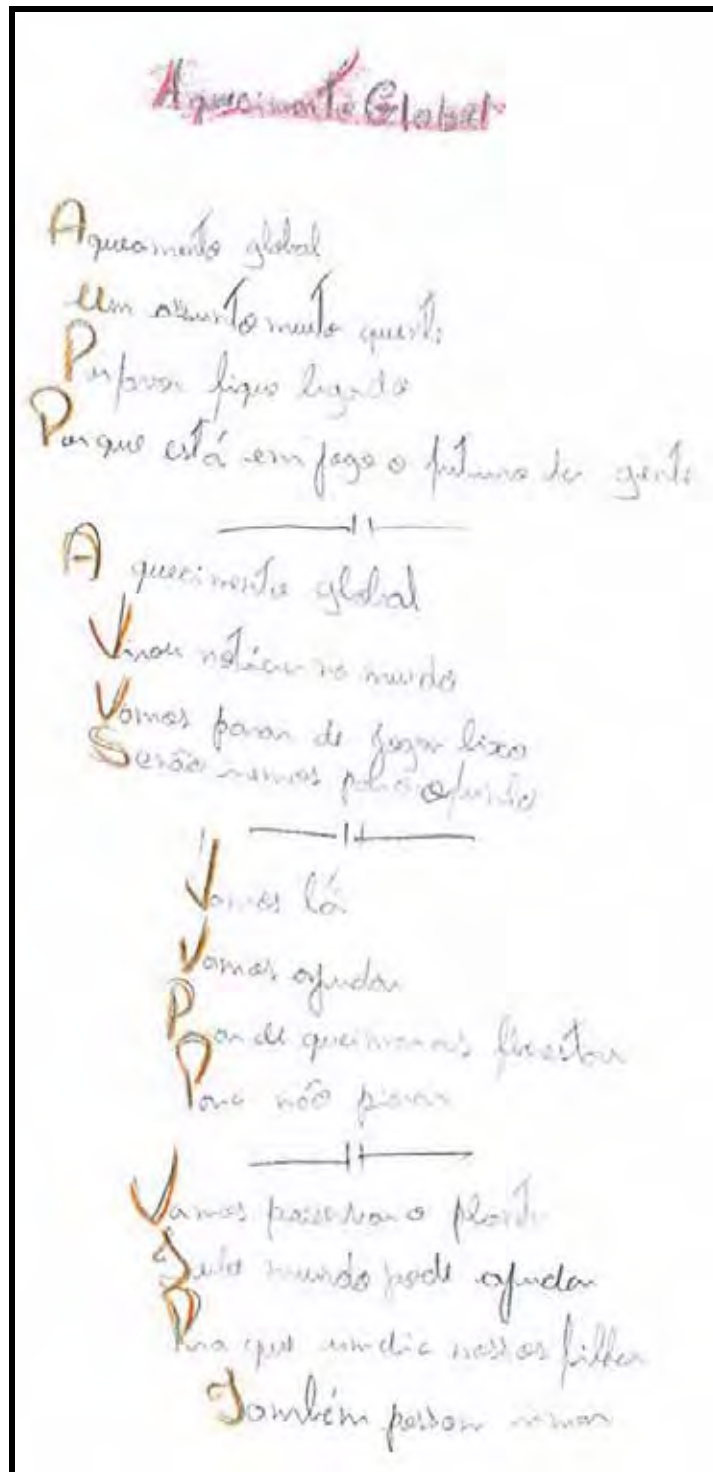 Aquecimento Global
Aquecimento global
Um assunto muito quente
Por favor fique ligado
Porque está em jogo o futuro da gente
Aquecimento global
Virou notícia no mundo
Vamos parar de jogar lixo
Senão vamos
Vamos lá
Vamos ajudar
Parar de queimar as florestas
Para não piorar
Vamos preservar o planeta
Todo mundo pode ajudar
Pra que um dia nossos filhos
Também possam